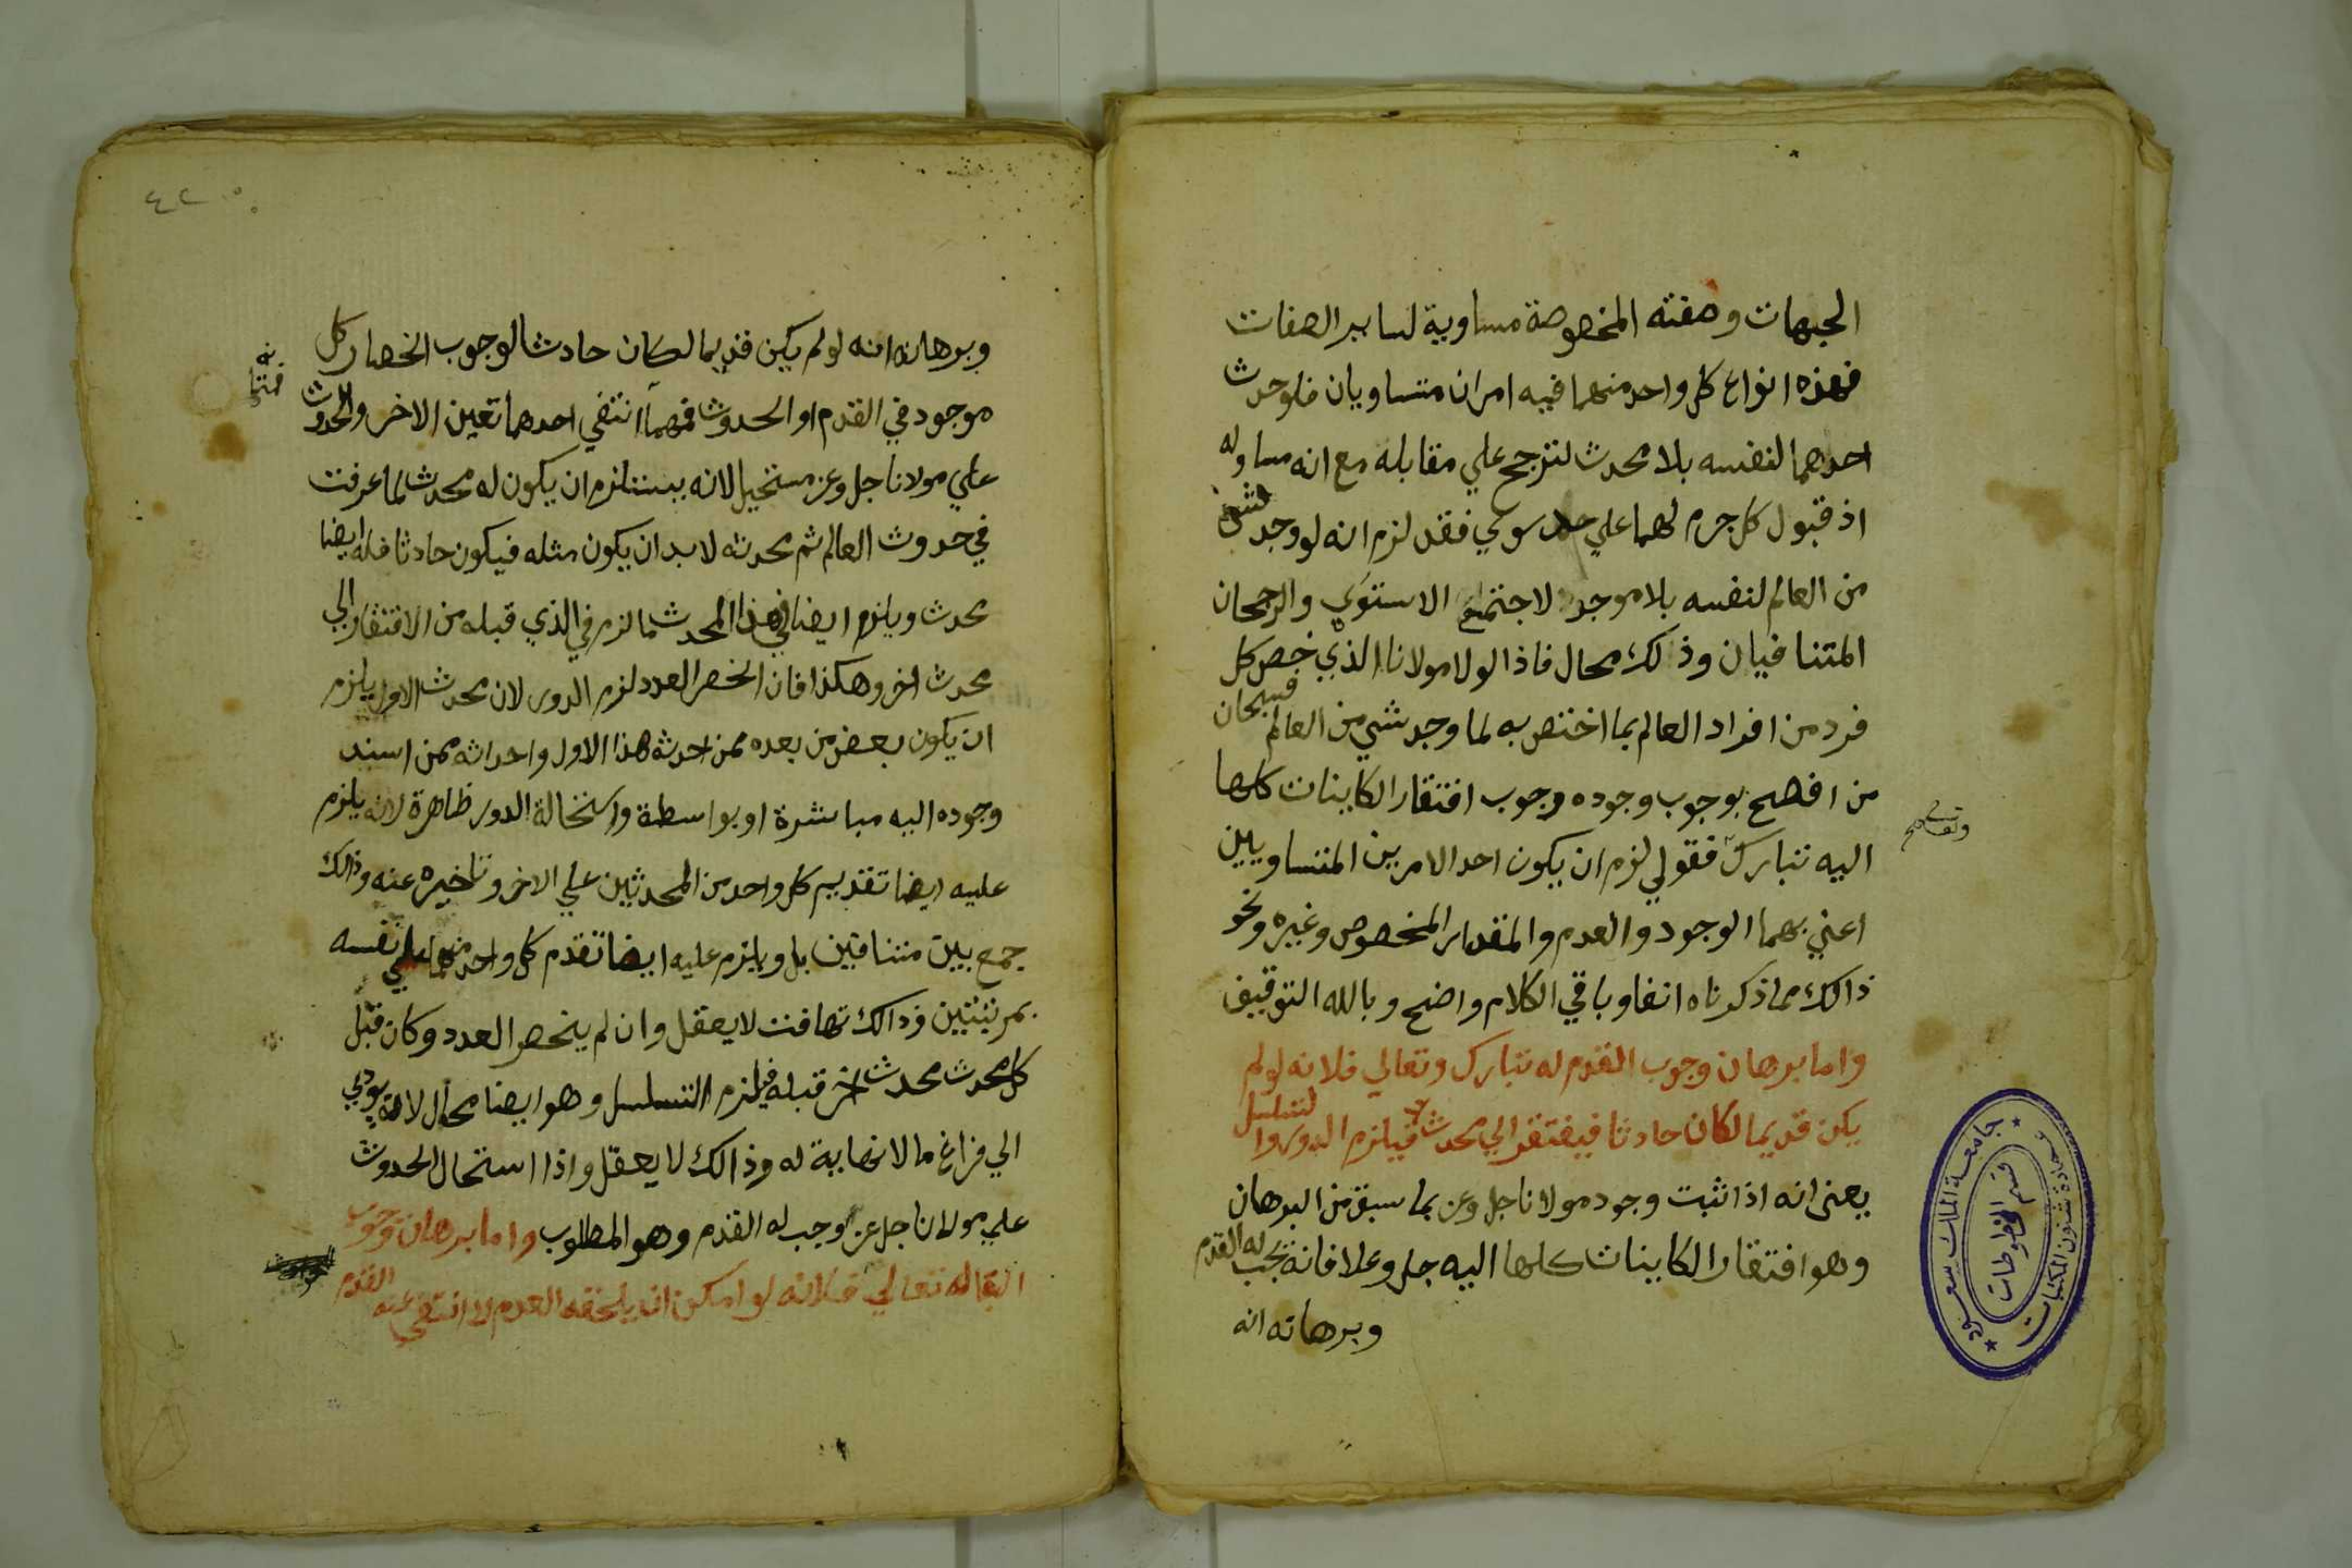 الجهات وصفته المخصوصة مساوية لساير الصفات
فهذه انواع كل واحد منهما فيه امران متساويان فلو حدث
احدهما لنفسه بلا محدث لترجح علي مقابله مع انه مساو له
اذ قبول كل جرم لهما علي حد سوي فقد لزم انه لو وجد شي
من العالم لنفسه بلا موجد لاجتمع الاستوي والرجحان
المتنافيان وذلك محال فاذا لولا مولانا الذي خص كل
فرد من افراد العالم بما اختص به لما وجد شي من العالم فسبحان
من افصح بوجوب وجوده وجوب افتقار الكاينات كلها
اليه تبارك فقولي لزم ان يكون احد الامرين المتساويين
وتعالي صح
اعني بهما الوجود والعدم والمقدار المخصوص وغيره ونحو
ذالك مما ذكرناه انفا وباقي الكلام واضح وبالله التوفيق
واما برهان وجوب القدم له تبارك وتعالي فلانه لو لم
يكن قديما لكان حادثا فيفتقر الي محدث فيلزم الدور والتسلسل
يعني انه اذا ثبت وجود مولانا جل وعز بما سبق من البرهان
وهو افتقار الكاينات كلها اليه جل وعلا فانه يجب له القدم
وبرهانه انه
جامعة الملك سعود
عمادة شئون المكتبات
قسم المخطوطات
٤٢
وبرهانه انه لو لم يكن قديما لكان حادثا لوجوب انحصار كل
موجود في القدم او الحدوث فمهما انتفي احدهما تعين الاخر والحدوث
علي مولانا جل وعز مستحيل لانه يستلزم ان يكون له محدث لما عرفت
في حدوث العالم ثم محدثه لا بد ان يكون مثله فيكون حادثا فله ايضا
محدث ويلزم ايضا في هذا المحدث ما لزم في الذي قبله من الافتقار الي
محدث اخر وهكذا فان انحصر العدد لزم الدور لان محدث الاول يلزم
ان يكون بعض من بعده ممن احدثه هذا الاول واحداثه ممن اسند
وجوده اليه مباشرة او بواسطة واستحالة الدور ظاهرة لانه يلزم
عليه ايضا تقديم كل واحد من المحدثين علي الاخر وتاخيره عنه وذالك
جمع بين متنافيين بل ويلزم عليه ايضا تقدم كل واحد منهما علي نفسه
بمرتبتين وذالك تهافت لا يعقل وان لم ينحصر العدد وكان قبل
كل محدث محدث اخر قبله فيلزم التسلسل وهو ايضا محال لانه يودي
الي فراغ ما لا نهاية له وذالك لا يعقل واذا استحال الحدوث
علي مولانا جل عز وجب له القدم وهو المطلوب واما برهان وجوب
البقا له تعالي فلانه لو امكن ان يلحقه العدم لانتفي عنه القدم